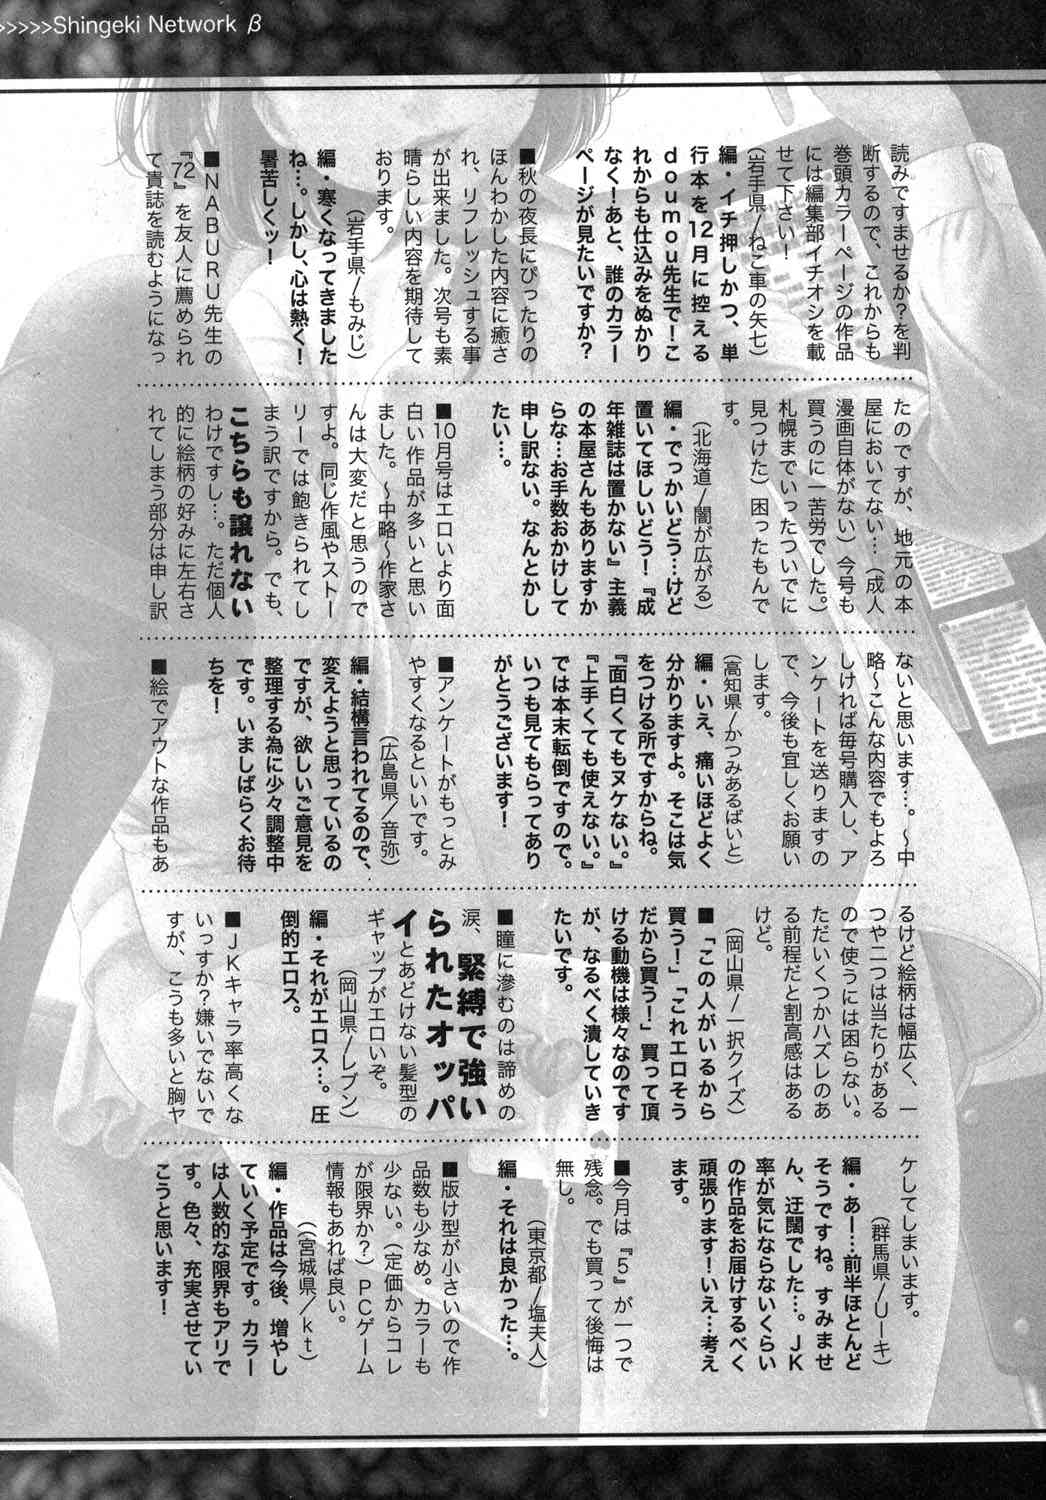 >>>>>Shingeki Network β
読みですませるか?を判
断するので、これからも
巻頭カラーページの作品
には編集部イチオシを載
せて下さい!
(岩手県/ねこ車の矢七)
編・イチ押しかつ、単
行本を12月に控える
doumou先生で!こ
れからも仕込みをぬかり
なく!あと、誰のカラー
ページが見たいですか?
■秋の夜長にぴったりの
ほんわかした内容に癒さ
れ、リフレッシュする事
が出来ました。次号も素
晴らしい内容を期待して
おります。
(岩手県/もみじ)
編・寒くなってきました
ね…。しかし、心は熱く!
暑苦しくッ!
■NABURU先生の
『72』を友人に薦められ
て貴誌を読むようになっ
たのですが、地元の本
屋においてない…(成人
漫画自体がない)今号も
買うのに一苦労でした。)
札幌までいったついでに
見つけた)困ったもんで
す。
(北海道/闇が広がる)
編・でっかいどう…けど
置いてほしいどう!『成
年雑誌は置かない』主義
の本屋さんもありますか
らな…お手数おかけして
申し訳ない。なんとかし
たい…。
■10月号はエロいより面
白い作品が多いと思い
ました。〜中略〜作家さ
んは大変だと思うので
すよ。同じ作風やストー
リーでは飽きられてし
まう訳ですから。でも、
こちらも譲れない
わけですし…。ただ個人
的に絵柄の好みに左右さ
れてしまう部分は申し訳
ないと思います…。〜中
略〜こんな内容でもよろ
しければ毎号購入し、ア
ンケートを送りますの
で、今後も宜しくお願い
します。
(高知県/かつみあるばいと)
編・いえ、痛いほどよく
分かりますよ。そこは気
をつける所ですからね。
『面白くてもヌケない。』
『上手くても使えない。』
では本末転倒ですので。
いつも見てもらってあり
がとうございます!
■アンケートがもっとみ
やすくなるといいです。
(広島県/音弥)
編・結構言われてるので、
変えようと思っているの
ですが、欲しいご意見を
整理する為に少々調整中
です。いましばらくお待
ちを!
■絵でアウトな作品もあ
るけど絵柄は幅広く、一
つや二つは当たりがある
ので使うには困らない。
ただいくつかハズレのあ
る前程だと割高感はある
けど。
(岡山県/一択クイズ)
■「この人がいるから
買う!」「これエロそう
だから買う!」買って頂
ける動機は様々なのです
が、なるべく潰していき
たいです。
■瞳に滲むのは諦めの
涙、緊縛で強い
られたオッパ
イとあどけない髪型の
ギャップがエロいぞ。
(岡山県/レブン)
編・それがエロス…。圧
倒的エロス。
■JKキャラ率高くな
いっすか?嫌いでないで
すが、こうも多いと胸ヤ
ケしてしまいます。
(群馬県/Uーキ)
編・あー…前半ほとんど
そうですね。すみませ
ん、迂闊でした…。JK
率が気にならないくらい
の作品をお届けするべく
頑張ります!いえ…考え
ます。
■今月は『5』が一つで
残念。でも買って後悔は
無し。
(東京都/塩夫人)
編・それは良かった…。
■版け型が小さいので作
品数も少なめ。カラーも
少ない。(定価からコレ
が限界か?)PCゲーム
情報もあれば良い。
(宮城県/kt)
編・作品は今後、増やし
ていく予定です。カラー
は人数的な限界もアリで
す。色々、充実させてい
こうと思います!